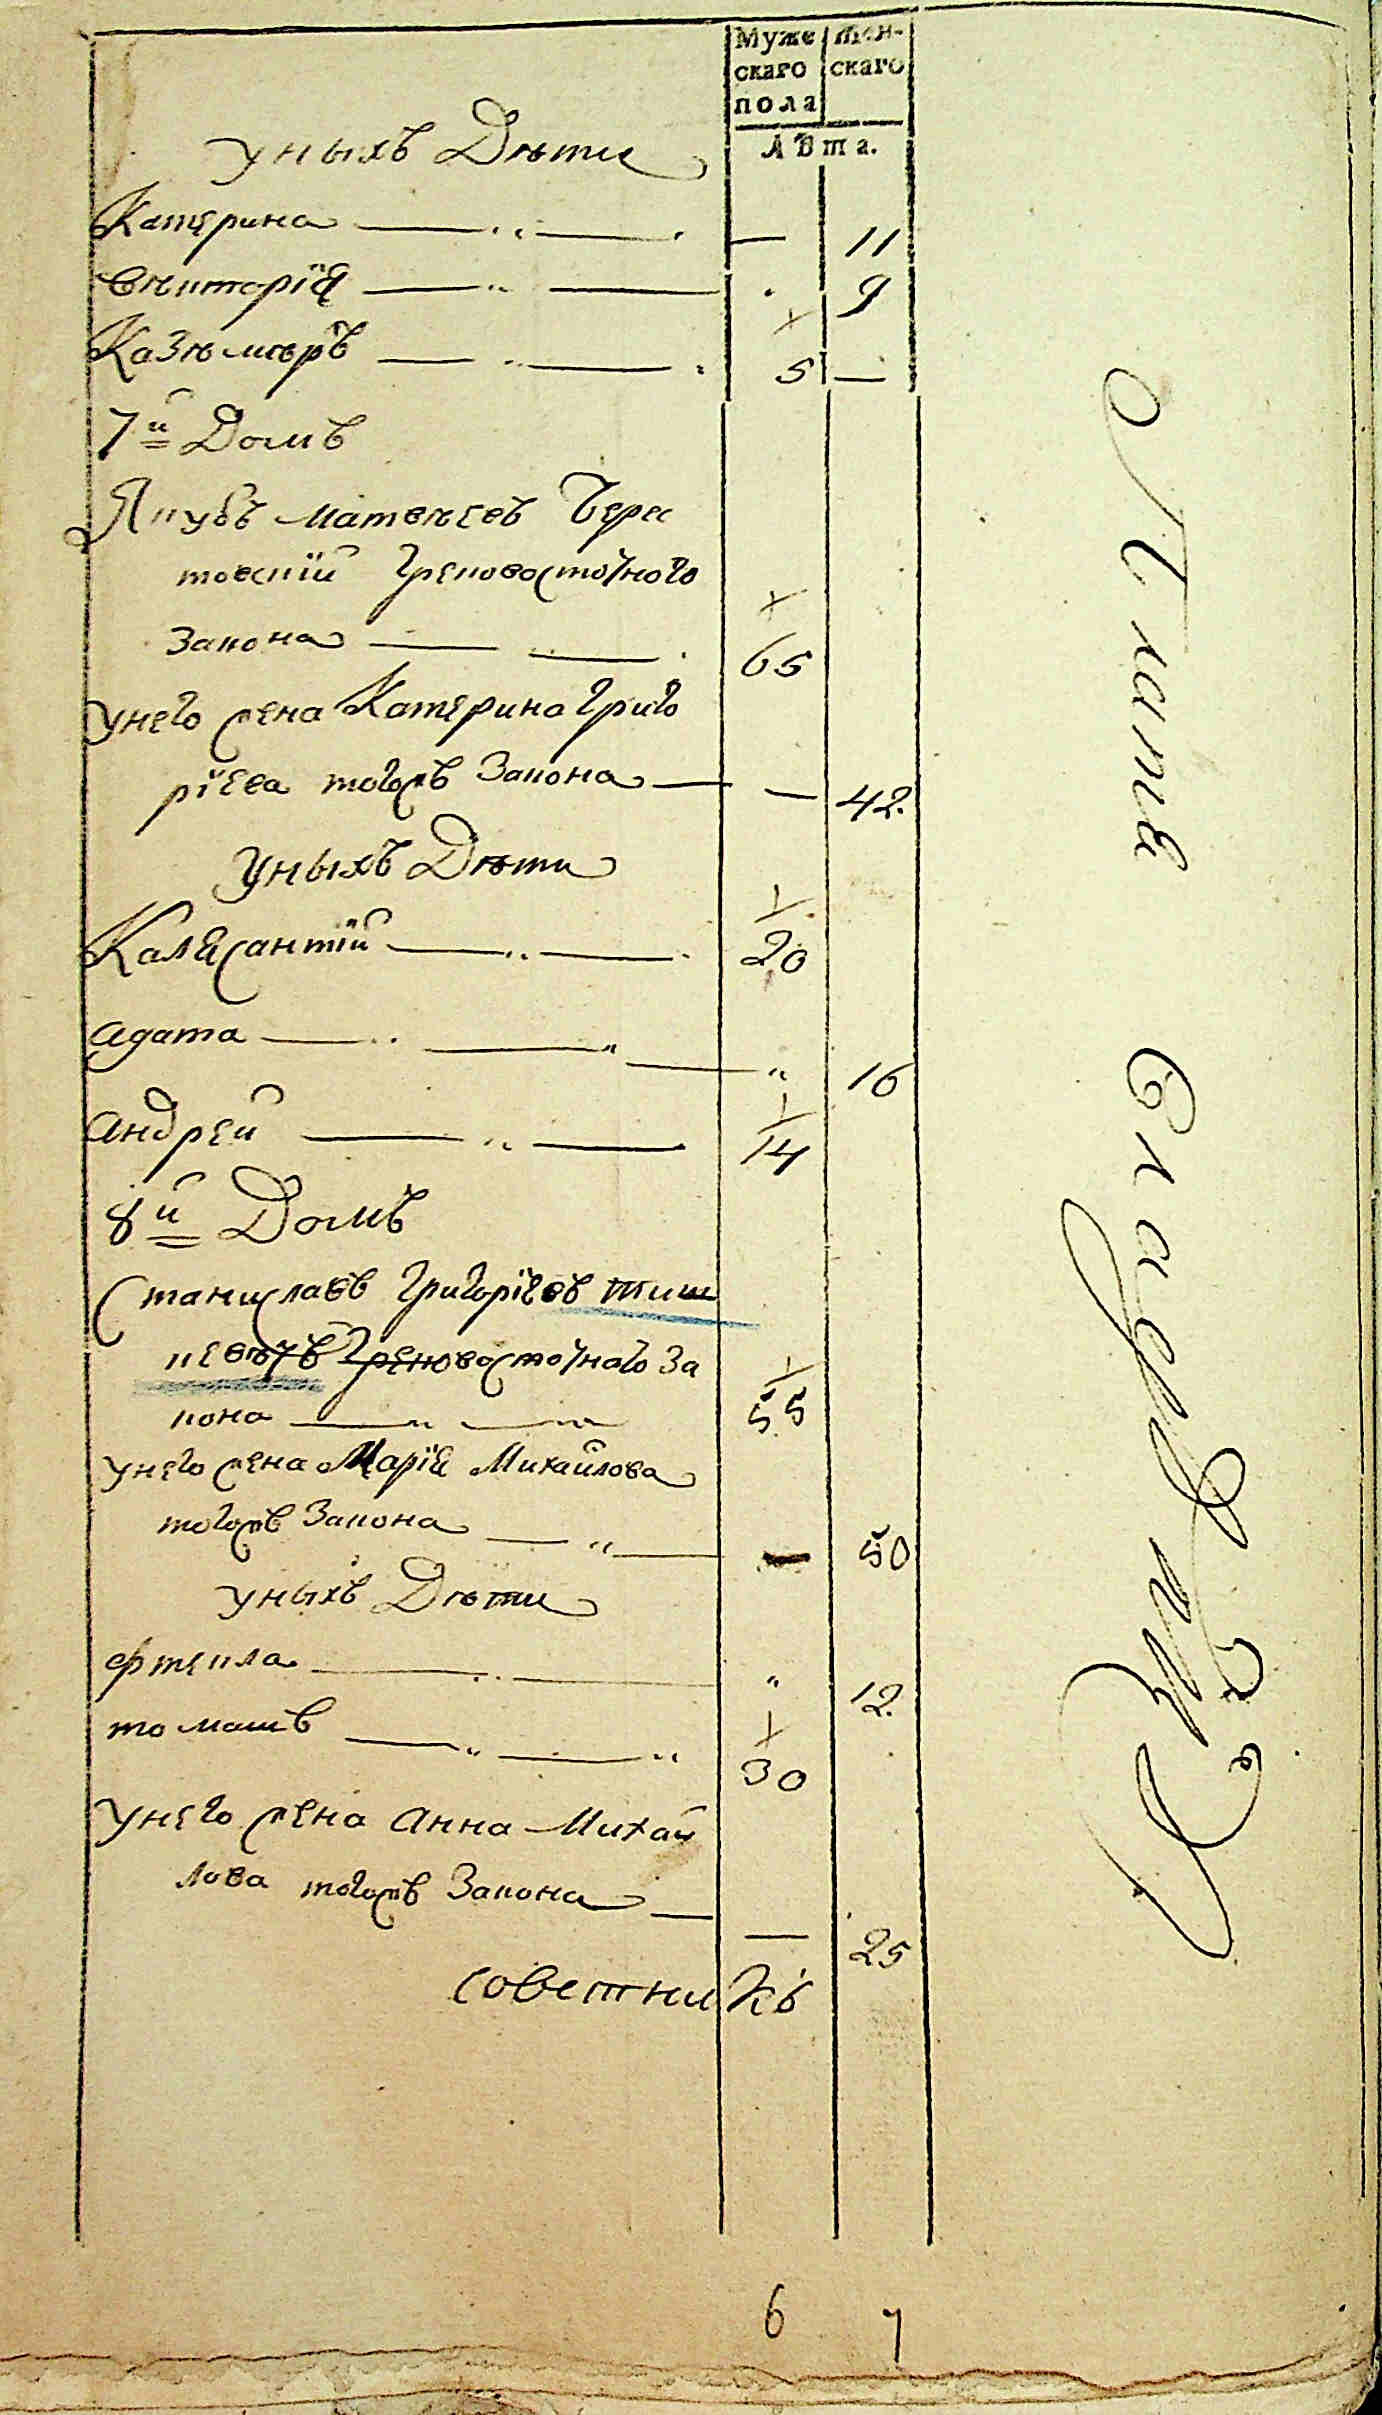 Муже
скаго
пола
Жен-
скаго
Лѣта.
уныхъ Дѣти
Катерина — 11
Викторія 9
Казѣмѣръ 5 —
7й Домъ
Якубъ Матвѣевъ Берес
товскій Грековосточного
Закона 65
унего жена Катерина Григо
ріева тогожъ Закона — 42.
уныхъ Дѣти
Калясантій 20
агата " 16
андрей 14
8й Домъ
Станиславъ Григоріевъ Тиш
кевѣчъ Грековосточного За
кона 55
унего жена Марія Михайлова
тогожъ Закона — 50
уныхъ Дѣти
фтекла " 12.
томашъ 30
унего жена анна Михай
лова тогожъ Закона — 25
советникъ
6 7